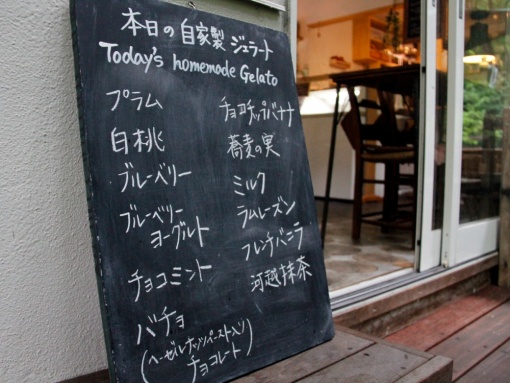 本日の自家製 ジェラート
Today's homemade Gelato
プラム
白桃
ブルーベリー
ブルーベリー
ヨーグルト
チョコミント
バチョ
(ヘーゼルナッツペースト入り
チョコレート)
チョコチップバナナ
蕎麦の実
ミルク
ラムレーズン
フレンチバニラ
河越抹茶